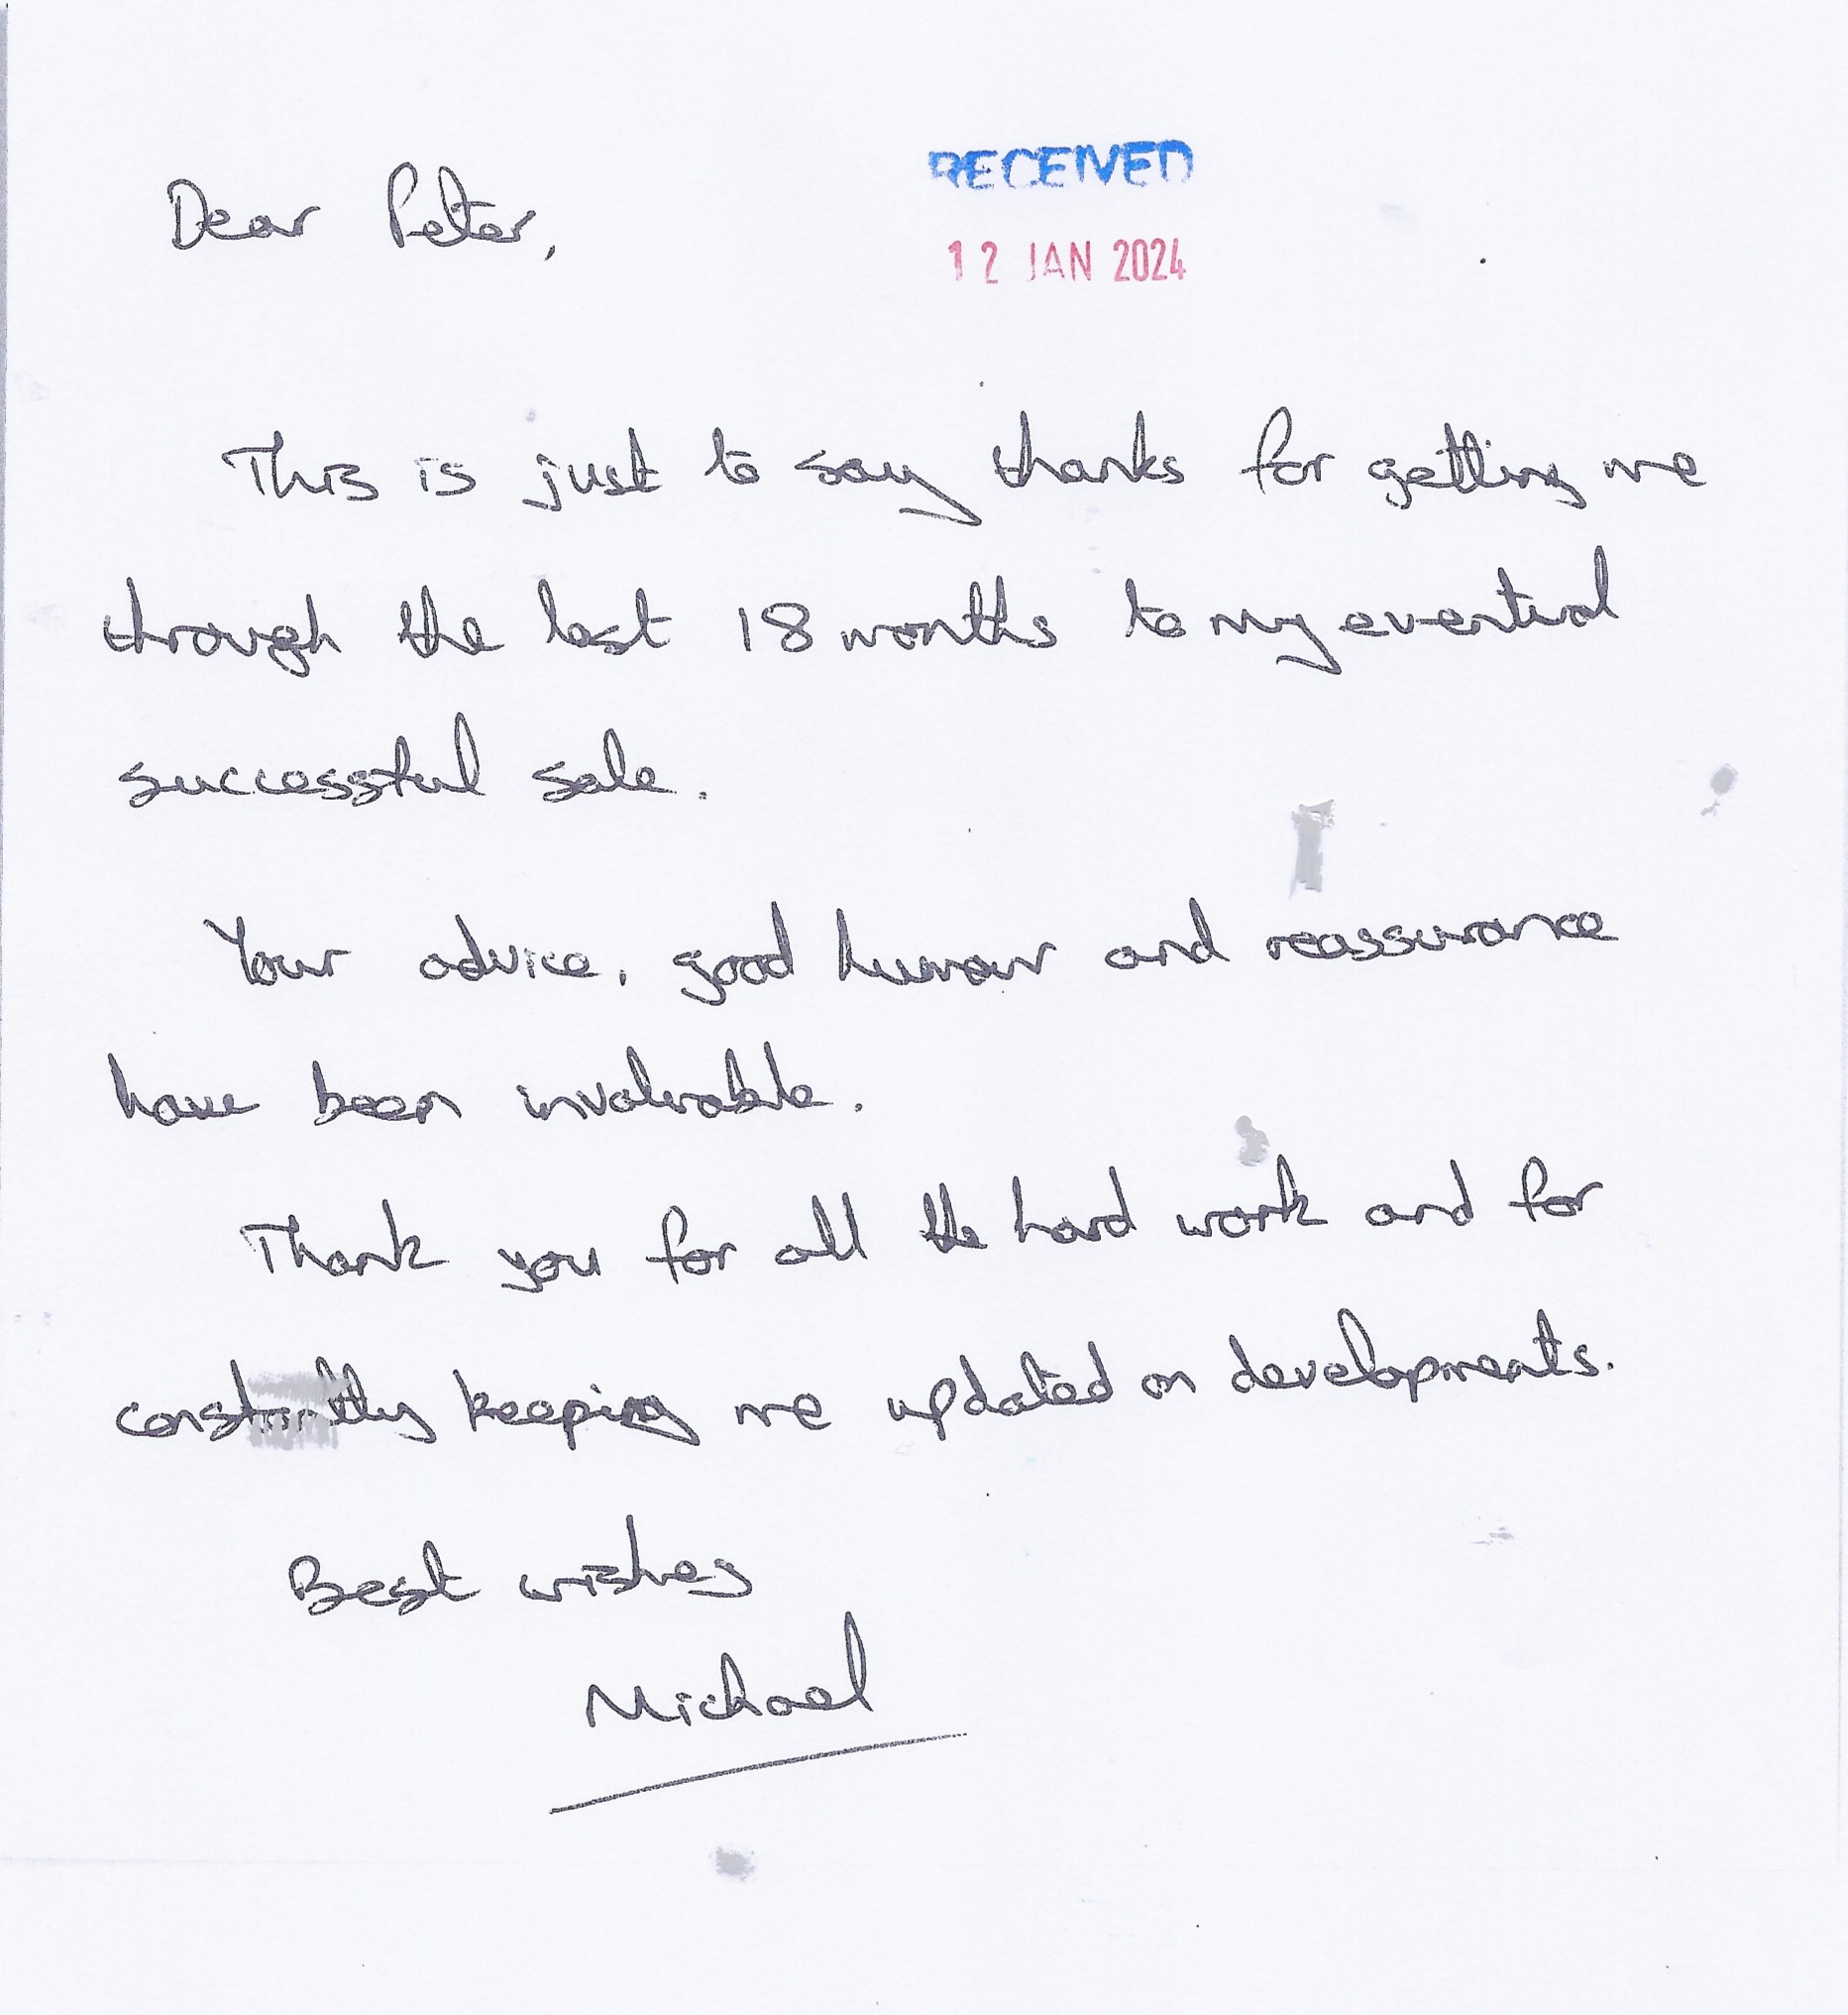 RECEIVED
Dear Peter,
12 JAN 2024
This is just to say thanks for getting me
through the last 18 months to my eventual
successful sale.
Your advice, good humour and reassurance
have been invaluable.
Thank you for all the hard work and for
constantly keeping me updated on developments.
Best wishes
Michael